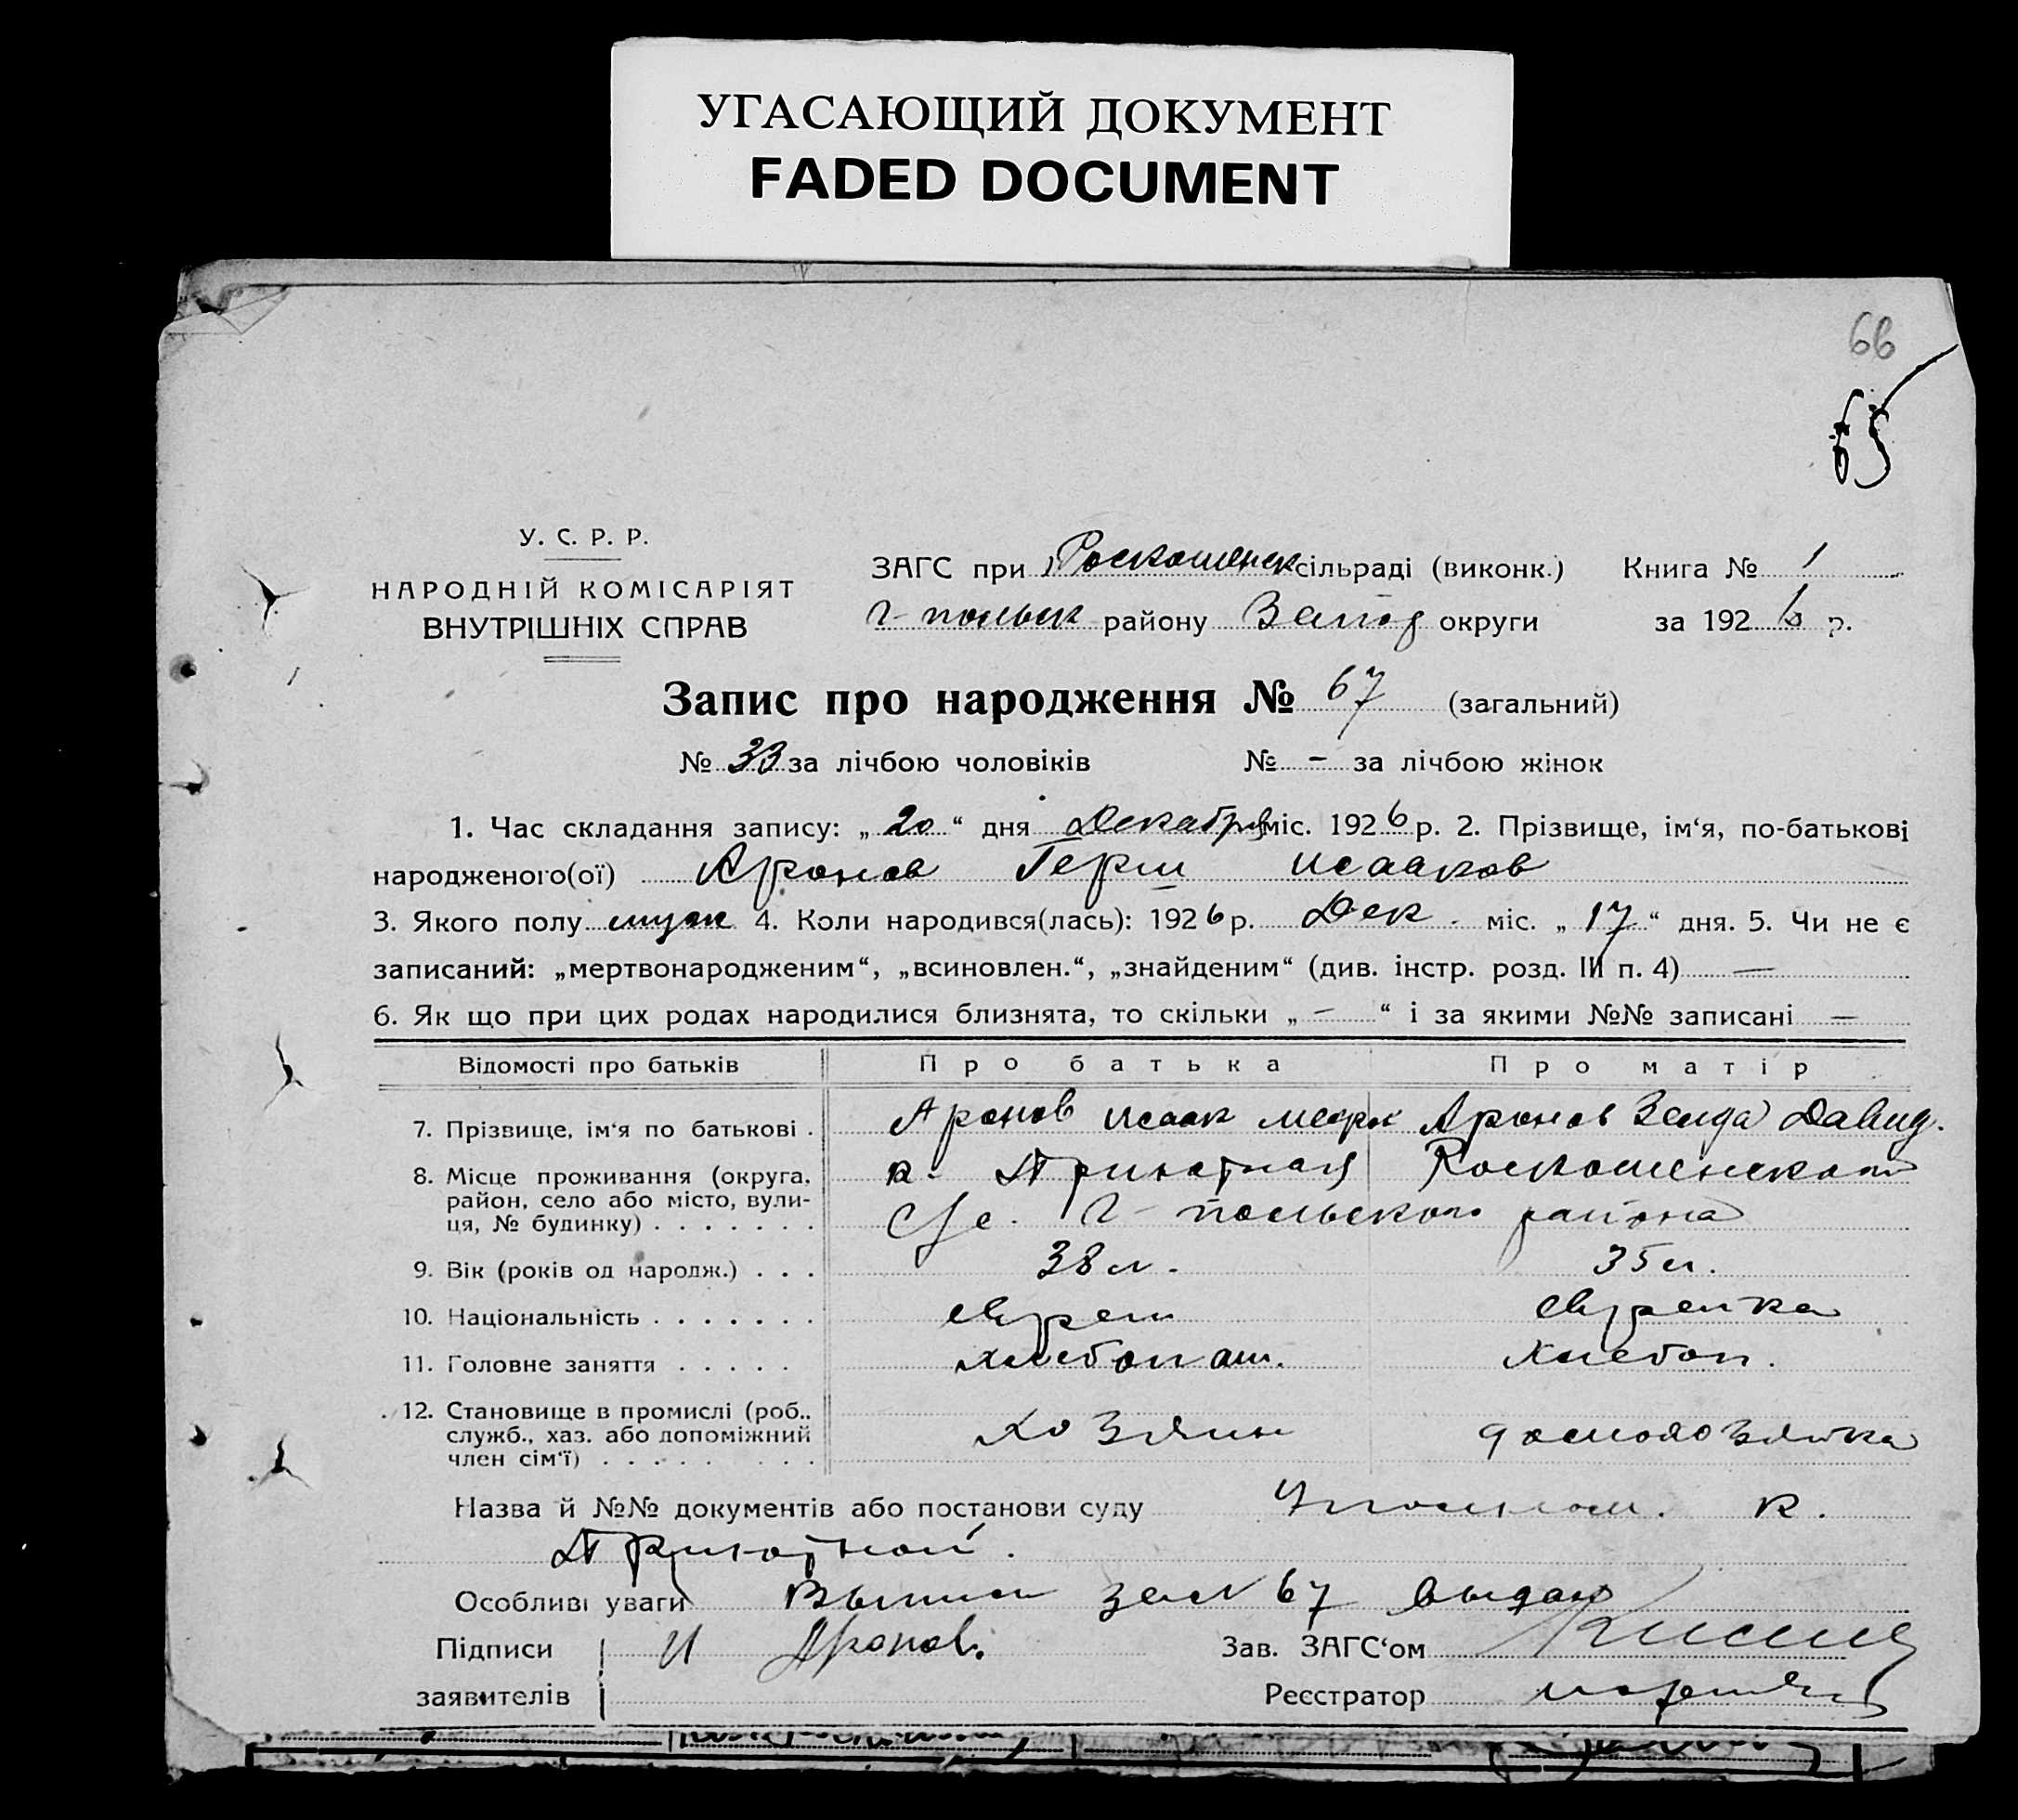 УГАСАЮЩИЙ ДОКУМЕНТ
FADED DOCUMENT
66
65
У. С. Р. Р.
НАРОДНІЙ КОМІСАРІЯТ
ВНУТРІШНІХ СПРАВ
ЗАГС при Роскошенск сільраді (виконк.) Книга № 1
Г-польск району Запор округи за 1926 р.
Запис про народження № 67 (загальний)
№ 33 за лічбою чоловіків № - за лічбою жінок
1. Час складання запису: „20“ дня Декабря міс. 1926 р. 2. Прізвище, ім‘я, по-батькові
народженого(ої) Аронов Герш Исааков
3. Якого полу муж 4. Коли народився(лась): 1926 р. Дек. міс. „17“ дня. 5. Чи не є
записаний: „мертвонародженим“, „всиновлен.“, „знайденим“ (див. інстр. розд. III п. 4) —
6. Як що при цих родах народилися близнята, то скільки „ - “ і за якими №№ записані —
Відомості про батьків Про батька Про матір
7. Прізвище, ім‘я по батькові . Аронов Исаак Меерк Аронов Зелда Давид.
8. Місце проживання (округа, к. Приютная Роскошенского
район, село або місто, вули- С/с. Г-польского района
ця, № будинку) . . . . . . .
9. Вік (років од народж.) . . . 38 л. 35 л.
10. Національність . . . . . . . еврей еврейка
11. Головне заняття . . . . . хлебопаш. Хлебоп.
12. Становище в промислі (роб.,
служб., хаз. або допоміжний хозяин домохозяйка
член сім‘ї) . . . . . . . .
Назва й №№ документів або постанови суду Уполном. к.
Приютной.
Особливі уваги Выпись за № 67 выдано
Підписи И Аронов. Зав. ЗАГС‘ом
заявителів Реєстратор